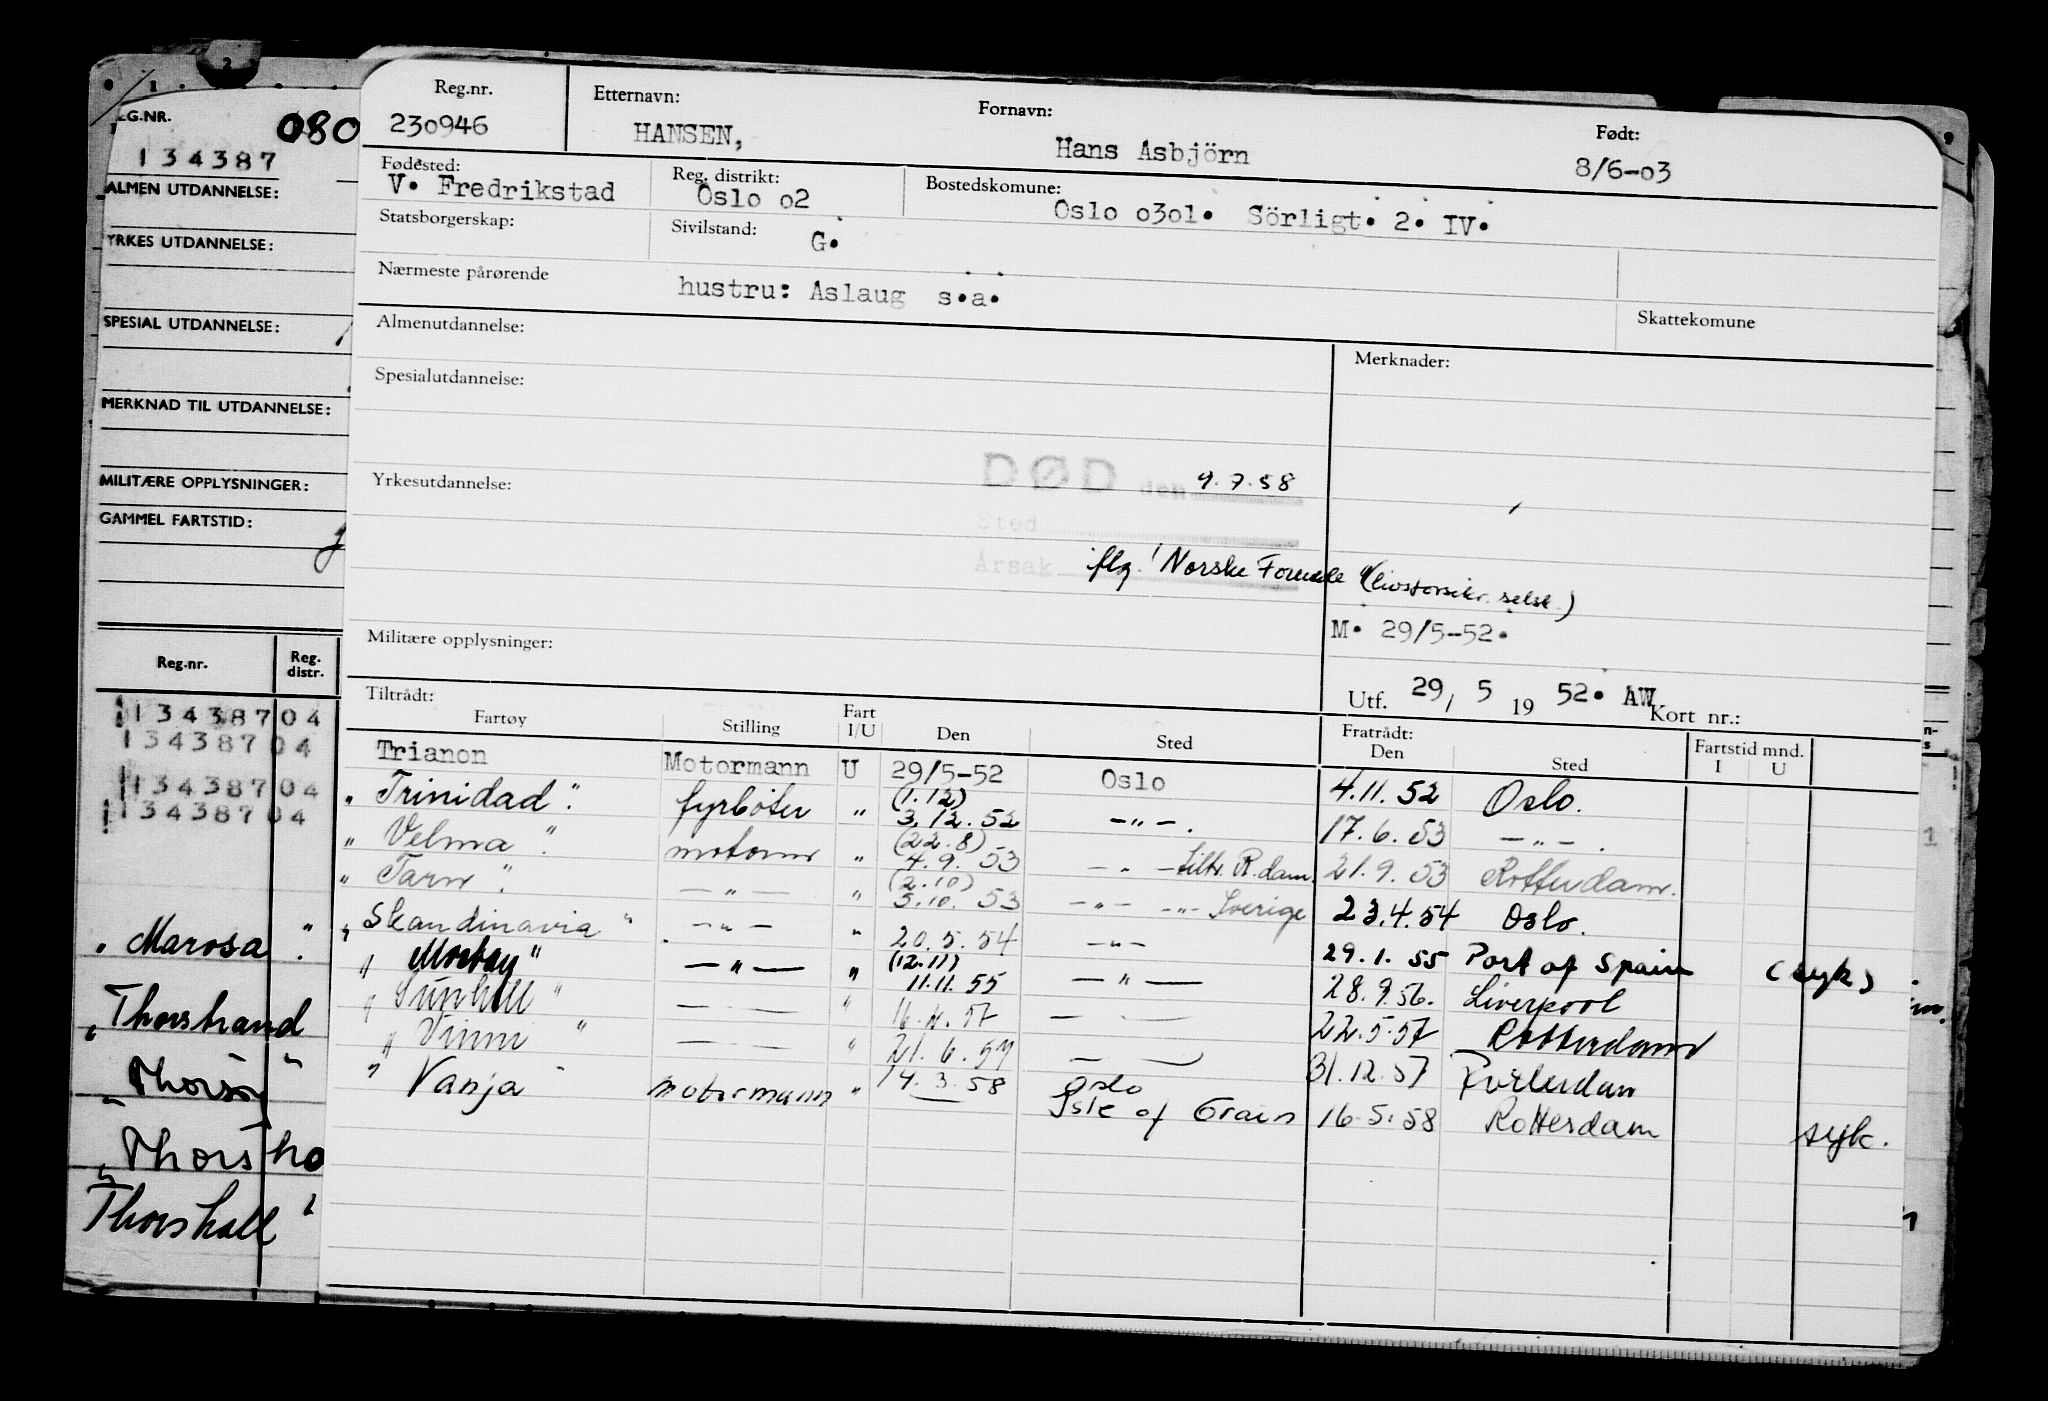 2
0 1
Reg.nr. Etternavn: Fornavn: Født:
230946 HANSEN, Hans Asbjörn 8/6-03
Fødested: Reg. distrikt: Bostedskomune:
V. Fredrikstad Oslo o2 Oslo o3o1. Sörligt. 2. IV.
Statsborgerskap: Sivilstand:
G.
Nærmeste pårørende
hustru: Aslaug s.a.
Skattekomune
Almenutdannelse: Merknader:
Spesialutdannelse:
Yrkesutdannelse:
DØD den 9.7.58
Sted
Årsak
iflg. "Norske Forenede" (livsforsikr. selsk.)
M. 29/5-52.
Militære opplysninger:
Utf. 29/ 5 19 52. AW Kort nr.:
Tiltrådt: Fratrådt: Fartstid mnd.
Fartøy Stilling Fart I/U Den Sted Den Sted I U
Trianon Motormann U 29/5-52 Oslo 4.11.52 Oslo.
"Trinidad". fyrbøter " (1.12) 3.12.52 -"-. 17.6.53 -"-.
"Velma". motorm " (22.8) 4.9.53 -"- tiltr. R.dam. 21.9.53 Rotterdam.
"Tarn". -"- " (2.10) 5.10.53 -"- -"- Sverige 23.4.54 Oslo.
"Skandinavia" -"- " 20.5.54 -"- 29.1.55 Port of Spain (syk)
" " -"- " (12.11) 11.11.55 -"- 28.9.56. Liverpool
"Sunhill" - - " 16.4.57 - - 22.5.57 Rotterdam
"Vinni" - - " 21.6.57 - - 31.12.57 Rotterdam
"Vanja" motormann " 14.3.58 Oslo
Isle of Grain 16.5.58 Rotterdam syk.
.EG.NR. 080
134387
ALMEN UTDANNELSE:
YRKES UTDANNELSE:
SPESIAL UTDANNELSE:
MERKNAD TIL UTDANNELSE:
MILITÆRE OPPLYSNINGER:
GAMMEL FARTSTID:
Reg.nr. Reg. distr.
134387 04
134387 04
134387 04
134387 04
"Marosa".
"Thorstrand"
"Thorsøy
"Thorsho
Thorshall"